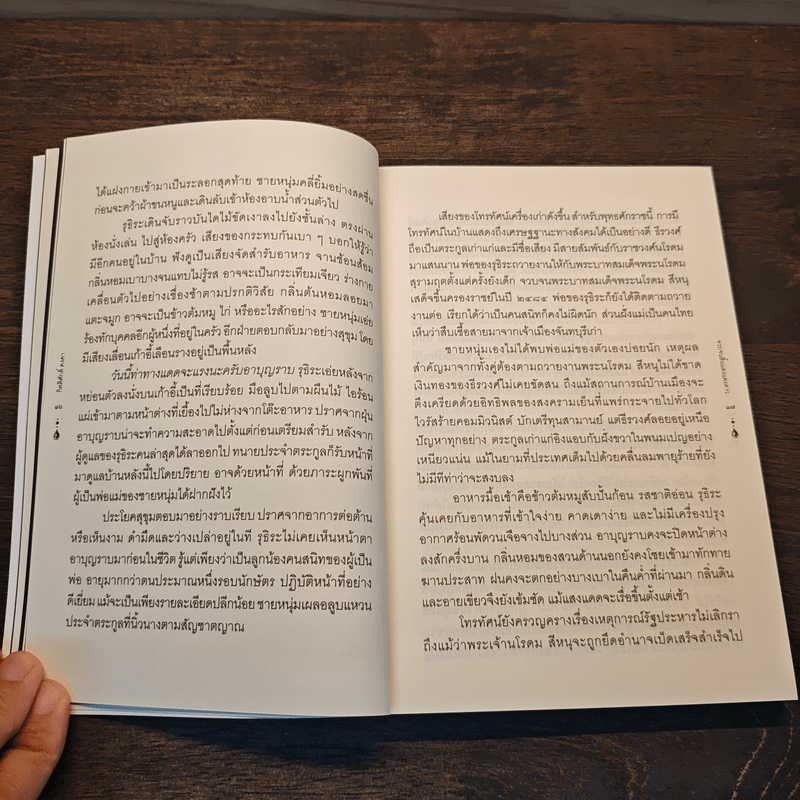 ได้แฝงกายเข้ามาเป็นระลอกสุดท้าย ชายหนุ่มคลี่ยิ้มอย่างสดชื่น
ก่อนจะคว้าผ้าขนหนูและเดินลับเข้าห้องอาบน้ำส่วนตัวไป
รุธิระเดินจับราวบันไดไม้ขัดเงาลงไปยังชั้นล่าง ตรงผ่าน
ห้องนั่งเล่น ไปสู่ห้องครัว เสียงของกระทบกันเบา ๆ บอกให้รู้ว่า
มีอีกคนอยู่ในบ้าน ฟังดูเป็นเสียงจัดสำรับอาหาร จานช้อนส้อม
กลิ่นหอมเบาบางจนแทบไม่รู้รส อาจจะเป็นกระเทียมเจียว ร่างกาย
เคลื่อนตัวไปอย่างเชื่องช้าตามปรกติวิสัย กลิ่นต้นหอมลอยมา
แตะจมูก อาจจะเป็นข้าวต้มหมู ไก่ หรืออะไรสักอย่าง ชายหนุ่มเอ่ย
ร้องทักบุคคลอีกผู้หนึ่งที่อยู่ในครัว อีกฝ่ายตอบกลับมาอย่างสุขุม โดย
มีเสียงเลื่อนเก้าอี้เลื่อนรางอยู่เป็นพื้นหลัง
วันนี้ท่าทางแดดจะแรงนะครับอาบุญราบ รุธิระเอ่ยหลังจาก
หย่อนตัวลงนั่งบนเก้าอี้เป็นที่เรียบร้อย มือลูบไปตามผืนไม้ ไอร้อน
แผ่เข้ามาตามหน้าต่างที่เยื้องไปไม่ห่างจากโต๊ะอาหาร ปราศจากฝุ่น
อาบุญราบน่าจะทำความสะอาดไปตั้งแต่ก่อนเตรียมสำรับ หลังจาก
ผู้ดูแลของรุธิระคนล่าสุดได้ลาออกไป ทนายประจำตระกูลก็รับหน้าที่
มาดูแลบ้านหลังนี้ไปโดยปริยาย อาจด้วยหน้าที่ ด้วยภาระผูกพันที่
ผู้เป็นพ่อแม่ของชายหนุ่มได้ฝากฝังไว้
ประโยคสุขุมตอบมาอย่างราบเรียบ ปราศจากอาการต่อต้าน
หรือเห็นงาม ดำมืดและว่างเปล่าอยู่ในที รุธิระไม่เคยเห็นหน้าตา
อาบุญราบมาก่อนในชีวิต รู้แต่เพียงว่าเป็นลูกน้องคนสนิทของผู้เป็น
พ่อ อายุมากกว่าตนประมาณหนึ่งรอบนักษัตร ปฏิบัติหน้าที่อย่าง
ดีเยี่ยม แม้จะเป็นเพียงรายละเอียดปลีกน้อย ชายหนุ่มเผลอลูบแหวน
ประจำตระกูลที่นิ้วนางตามสัญชาตญาณ
กิตติศักดิ์ คงคา
๑๖
เสียงของโทรทัศน์เครื่องเก่าดังขึ้น สำหรับพุทธศักราชนี้ การมี
โทรทัศน์ในบ้านแสดงถึงเศรษฐฐานะทางสังคมได้เป็นอย่างดี ธีรวงศ์
ถือเป็นตระกูลเก่าแก่และมีชื่อเสียง มีสายสัมพันธ์กับราชวงศ์นโรดม
มาแสนนาน พ่อของรุธิระถวายงานให้กับพระบาทสมเด็จพระนโรดม
สุรามฤตตั้งแต่ครั้งยังเด็ก จวบจนพระบาทสมเด็จพระนโรดม สีหนุ
เสด็จขึ้นครองราชย์ในปี ๒๔๘๔ พ่อของรุธิระก็ยังได้ติดตามถวาย
งานต่อ เรียกได้ว่าเป็นคนสนิทก็คงไม่ผิดนัก ส่วนฝั่งแม่เป็นคนไทย
เห็นว่าสืบเชื้อสายมาจากเจ้าเมืองจันทบุรีเก่า
ชายหนุ่มเองไม่ได้พบพ่อแม่ของตัวเองบ่อยนัก เหตุผล
สำคัญมาจากทั้งคู่ต้องตามถวายงานพระนโรดม สีหนุไม่ได้ขาด
เงินทองของธีรวงศ์ไม่เคยขัดสน ถึงแม้สถานการณ์บ้านเมืองจะ
ตึงเครียดด้วยอิทธิพลของสงครามเย็นที่แพร่กระจายไปทั่วโลก
ไวรัสร้ายคอมมิวนิสต์ บักเตรีทุนสามานย์ แต่ธีรวงศ์ลอยอยู่เหนือ
ปัญหาทุกอย่าง ตระกูลเก่าแก่อิงแอบกับฝั่งขวาในพนมเปญอย่าง
เหนียวแน่น แม้ในยามที่ประเทศเต็มไปด้วยคลื่นลมพายุร้ายที่ยัง
ไม่มีทีท่าว่าจะสงบลง
อาหารมื้อเช้าคือข้าวต้มหมูสับปั้นก้อน รสชาติอ่อน รุธิระ
คุ้นเคยกับอาหารที่เข้าใจง่าย คาดเดาง่าย และไม่มีเครื่องปรุง
อากาศร้อนพัดวนเจือจางไปบางส่วน อาบุญราบคงจะปิดหน้าต่าง
ลงสักครึ่งบาน กลิ่นหอมของสวนด้านนอกยังคงโชยเข้ามาทักทาย
ฆานประสาท ฝนคงจะตกอย่างบางเบาในคืนค่ำที่ผ่านมา กลิ่นดิน
และอายเขียวจึงยังเข้มชัด แม้แสงแดดจะเรื่อขึ้นตั้งแต่เช้า
โทรทัศน์ยังครวญครางเรื่องเหตุการณ์รัฐประหารไม่เลิกรา
ถึงแม้ว่าพระเจ้านโรดม สีหนุจะถูกยึดอำนาจเบ็ดเสร็จสำเร็จไป
๑๗